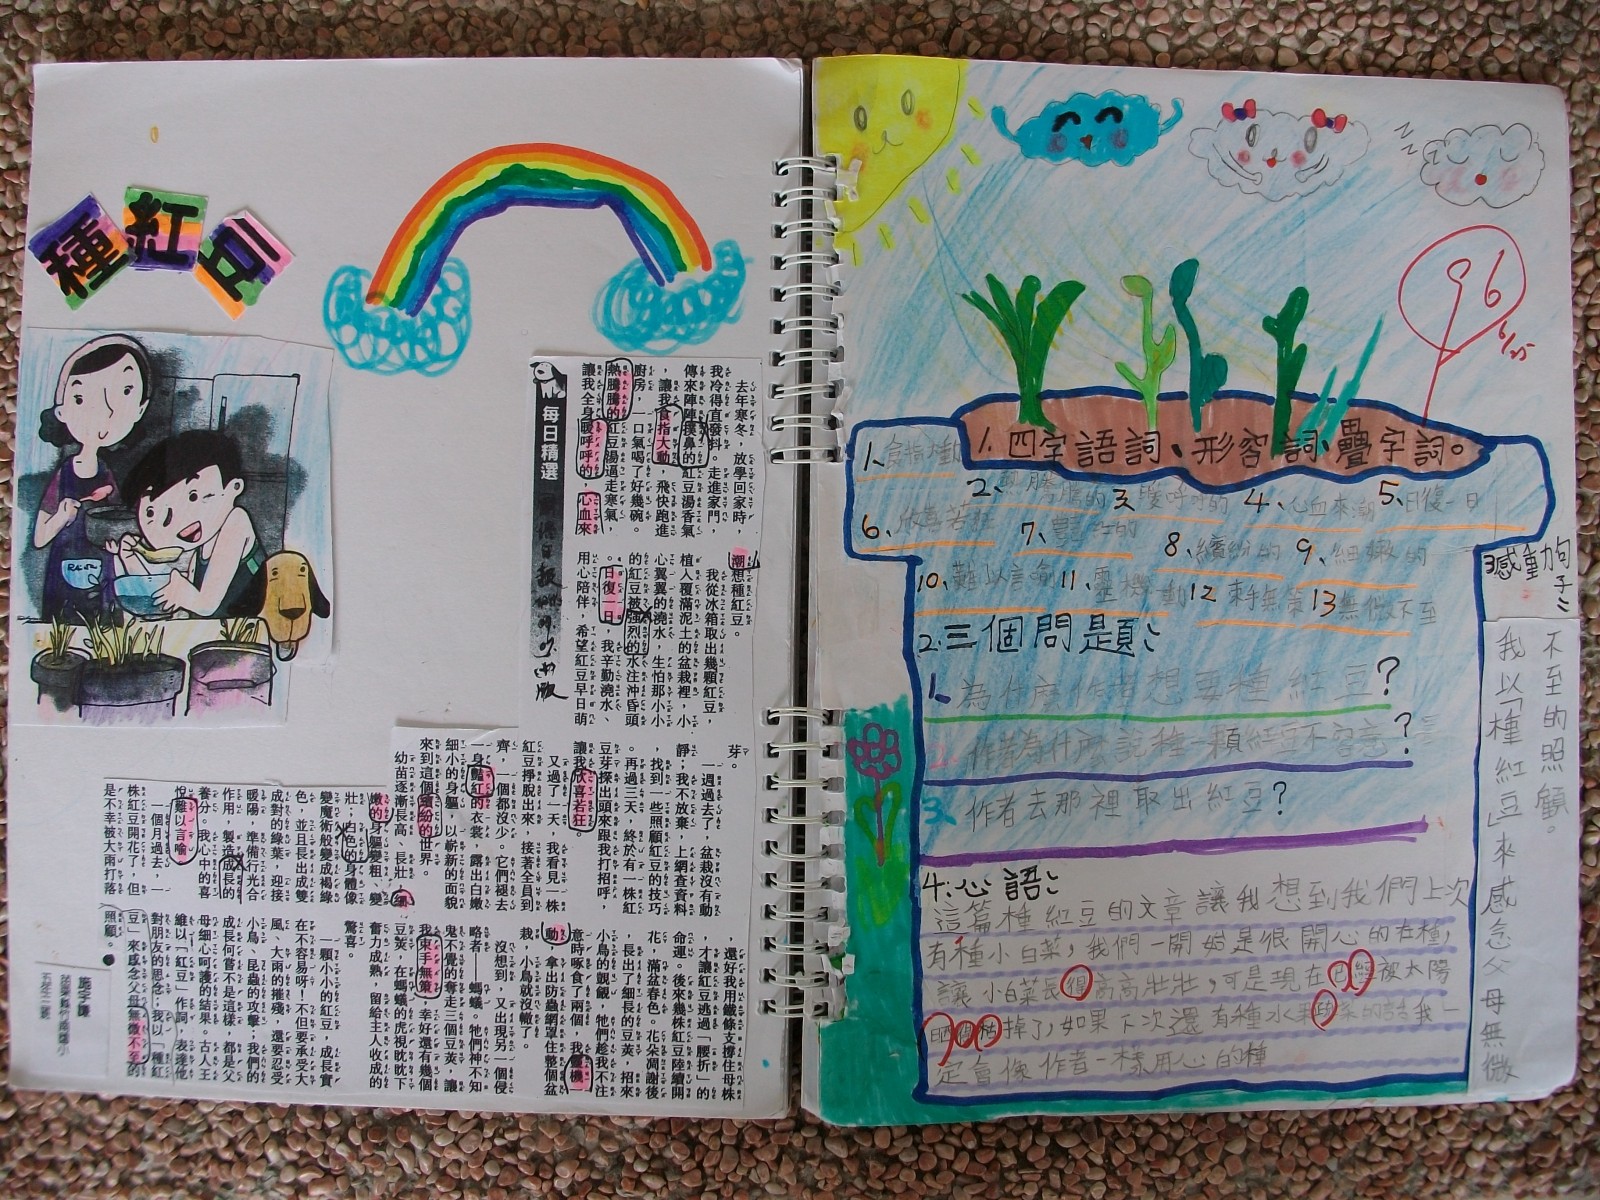 種紅豆
每日精選
去年寒冬，放學回家時，
我冷得直發抖。走進家門，
傳來陣陣撲鼻的紅豆湯香氣
，讓我食指大動，飛快跑進
廚房，一口氣喝了好幾碗。
熱騰騰的紅豆湯逼走寒氣，
讓我全身暖呼呼的，心血來
潮想種紅豆。
我從冰箱取出幾顆紅豆，
植入覆滿泥土的盆栽裡，小
心翼翼的澆水，生怕那小小
的紅豆被強烈的水注沖昏頭
。日復一日，我辛勤澆水、
用心陪伴，希望紅豆早日萌
芽。
一週過去了，盆栽沒有動
靜；我不放棄，上網查資料
，找到一些照顧紅豆的技巧
。再過三天，終於有一株紅
豆芽探出頭來跟我打招呼，
讓我欣喜若狂。
又過了一天，我看見一株
紅豆掙脫出來，接著全員到
齊，一個都沒少。它們褪去
一身豔紅的衣裳，露出白嫩
細小的身軀，以嶄新的面貌
來到這個繽紛的世界。
幼苗逐漸長高、長壯，細
嫩的身軀變粗、變
壯；白色的身體像
變魔術般變成褐綠
色，並且長出成雙
成對的綠葉，迎接
暖陽，準備行光合
作用，製造成長的
養分。我心中的喜
悅難以言喻。
一個月過去，一
株紅豆開花了，但
是不幸被大雨打落
，還好我用鐵條支撐住母株
，才讓紅豆逃過「腰折」的
命運。後來幾株紅豆陸續開
花，滿盆春色。花朵凋謝後
，長出了細長的豆莢，招來
小鳥的覬覦，牠們趁我不注
意時啄食了兩個，我靈機一
動，拿出防蟲網罩住整個盆
栽，小鳥就沒轍了。
沒想到，又出現另一個侵
略者——螞蟻。牠們神不知
鬼不覺的奪走三個豆莢，讓
我束手無策。幸好還有幾個
豆莢，在螞蟻的虎視眈眈下
奮力成熟，留給主人收成的
驚喜。
一顆小小的紅豆，成長實
在不容易呀！不但要承受大
風、大雨的摧殘，還要忍受
小鳥、昆蟲的攻擊。我們的
成長何嘗不是這樣，都是父
母細心呵護的結果。古人王
維以「紅豆」作詞，表達他
對朋友的思念；我以「種紅
豆」來感念父母無微不至的
照顧。●
96
6/25
1.四字語詞、形容詞、疊字詞。
1、食指大動
2、熱騰騰的 3、暖呼呼的 4、心血來潮 5、日復一日
6、欣喜若狂 7、豔紅的 8、繽紛的 9、細嫩的
10、難以言喻 11、靈機一動 12 束手無策 13 無微不至
2.三個問題：
1、為什麼作者想要種紅豆？
2.作者為什麼說種一顆紅豆不容易？
3、作者去那裡取出紅豆？
3感動句子：
我以「種紅豆」來感念父母無微
不至的照顧。
4.心語：
這篇種紅豆的文章讓我想到我們上次
有種小白菜，我們一開始是很開心的在種，
讓小白菜長得高高壯壯，可是現在已經被太陽
掉了，如果下次還有種水的話我一
定會像作者一樣用心的種